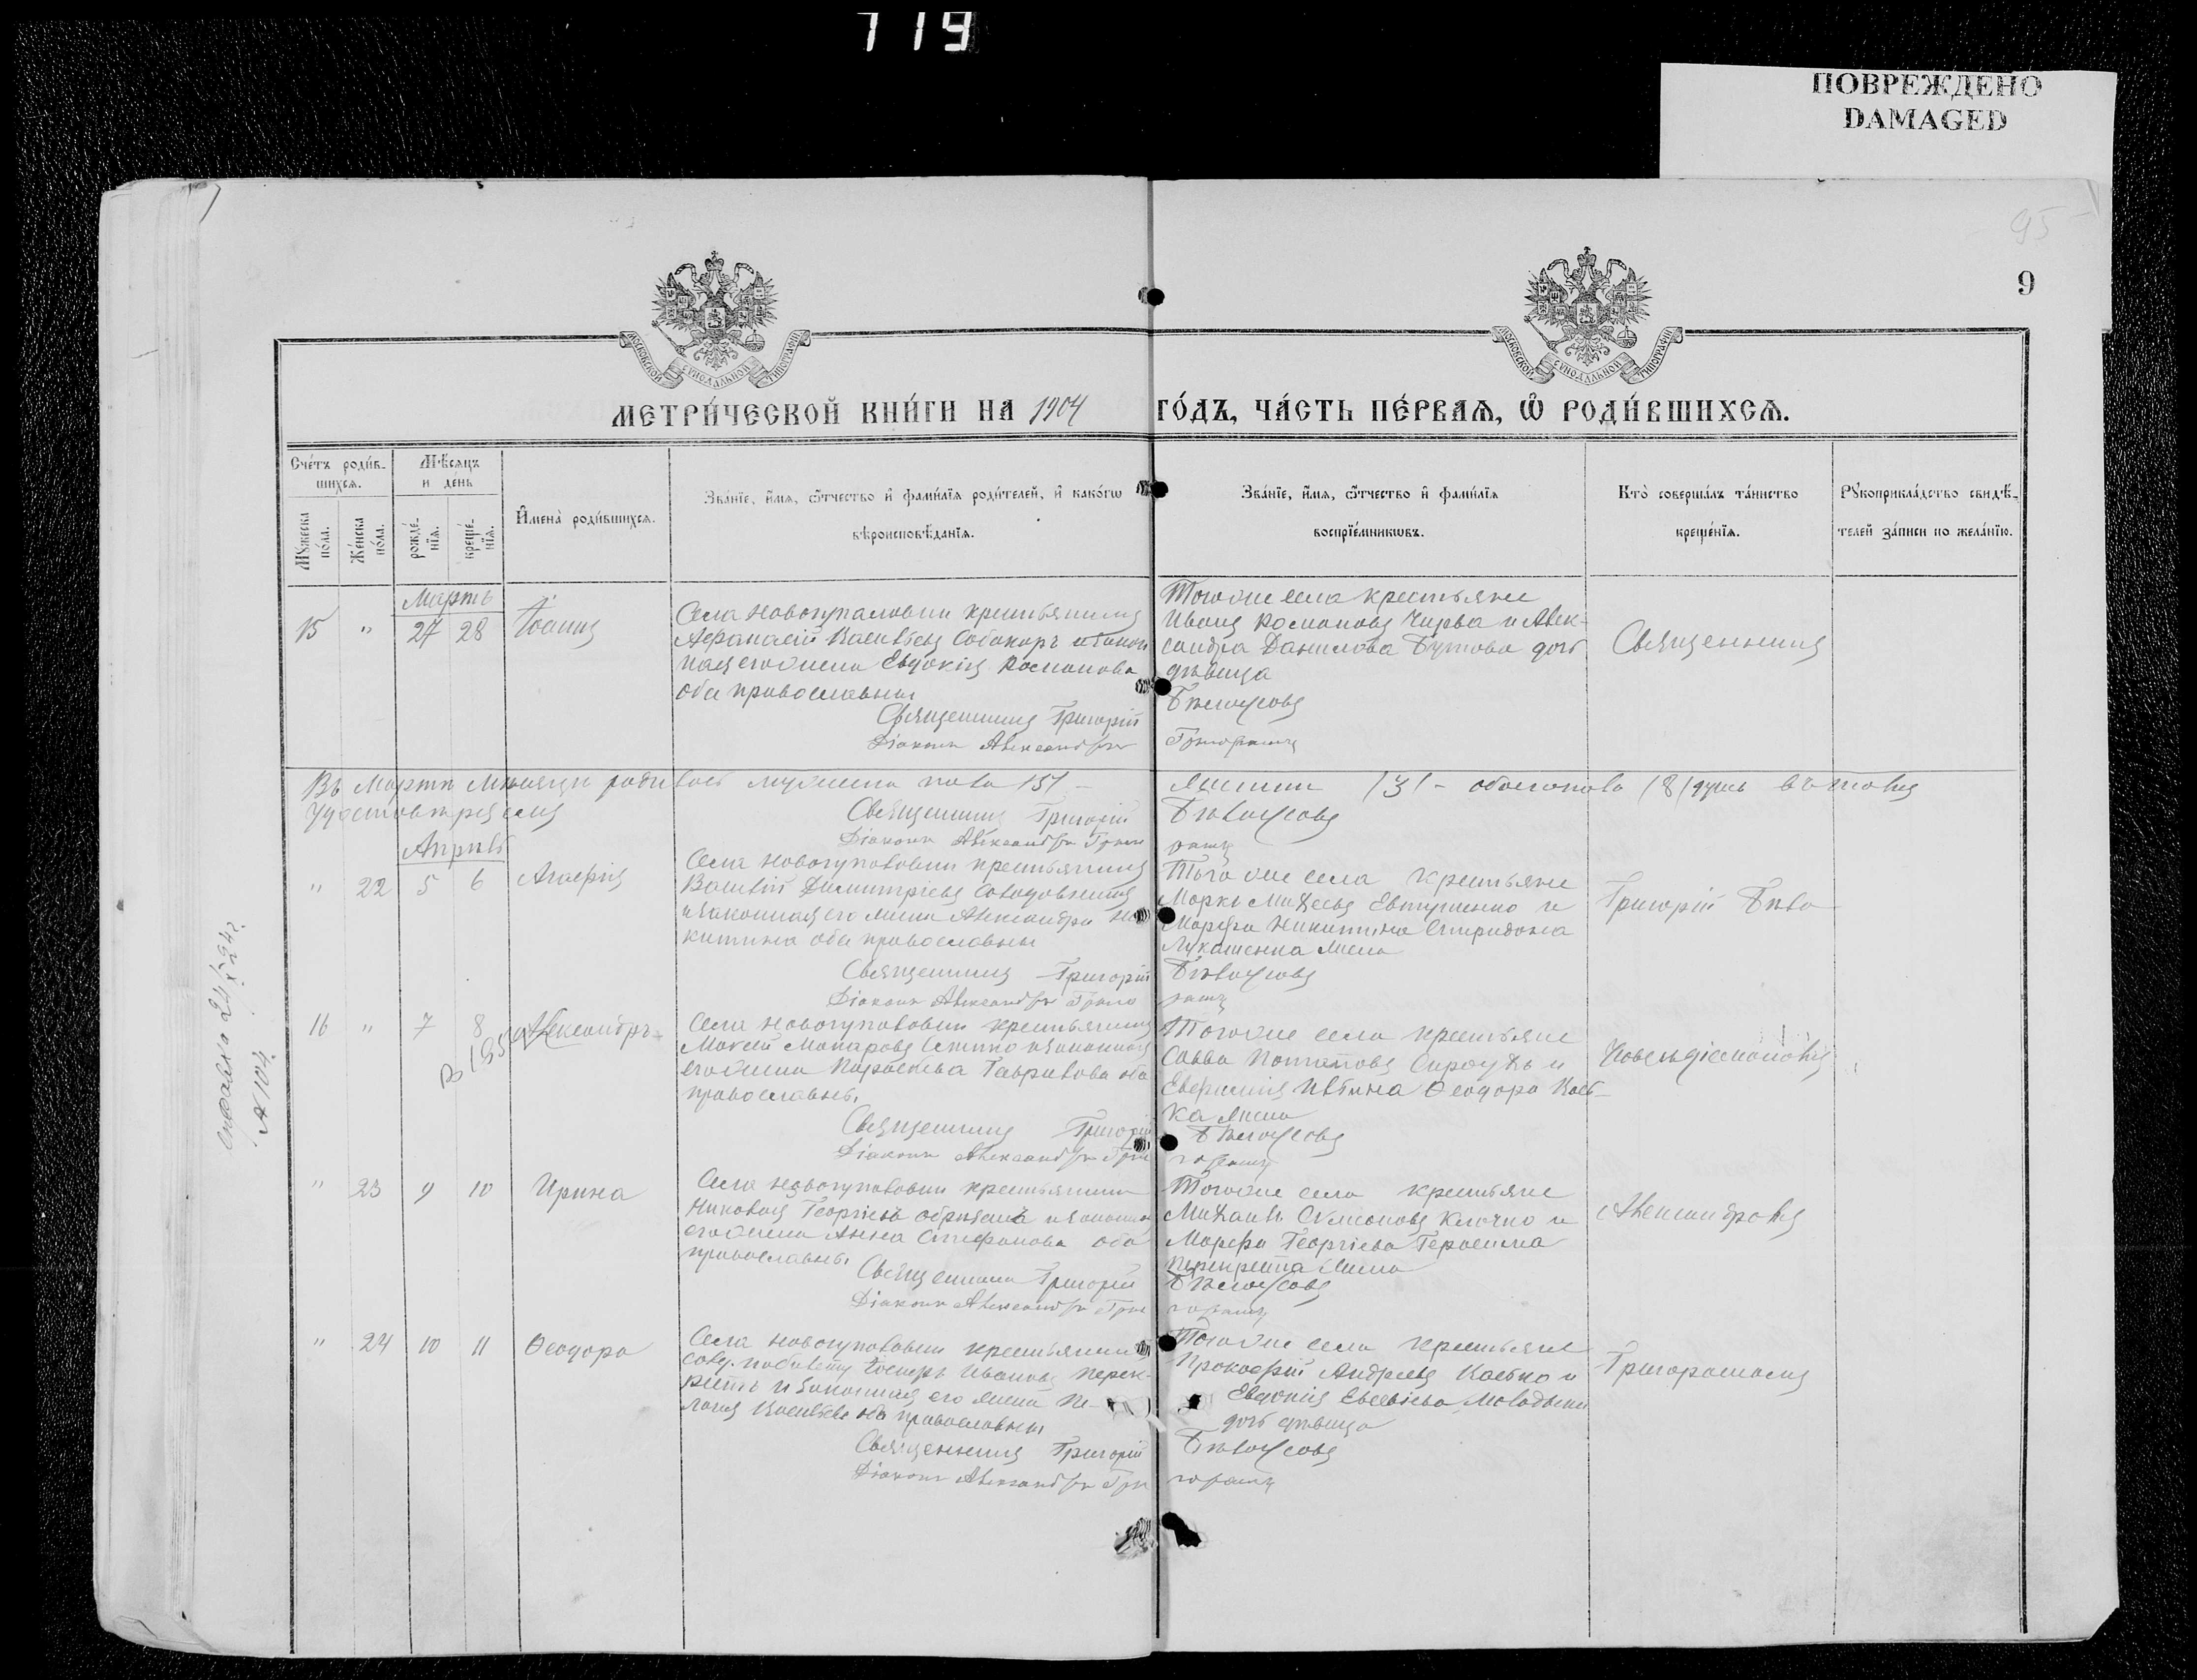 119
ПОВРЕЖДЕНО
DAMAGED
95
9
МОСКОВСКОЙ СѴНОДАЛЬНОЙ ТИПОГРАФІИ
МОСКОВСКОЙ СѴНОДАЛЬНОЙ ТИПОГРАФІИ
МЕТРИ́ЧЕСКОЙ КНИ́ГИ НА 1904 ГО́ДЪ, ЧА́СТЬ ПЕ́РВАѦ, Ѡ҆ РОДИ́ВШИХСѦ.
Сче́тъ роди́в-
шихсѧ.
Мꙋжеска по́ла.
Же́нска по́ла.
Мѣ́сѧцъ
и де́нь
рожде́-
нїѧ.
креще́-
нїѧ.
И҆мена̀ роди́вшихсѧ.
Зва́нїе, и҆́мѧ, ѻ҆́тчество и҆ фами́лїѧ роди́телей, и҆ како́гѡ
вѣроисповѣ́данїѧ.
Зва́нїе, и҆́мѧ, ѻ҆́тчество и҆ фами́лїѧ
воспрїе́мникѡвъ.
Кто̀ соверша́лъ та́инство
креще́нїѧ.
Рꙋкоприкла́дство свидѣ́-
телей за́писи по жела́нїю.
Мартъ
15 " 27 28 Іоаннъ
Села Новогупаловки крестьянинъ
Афанасій Васильевъ Собакарь и закон
ная его жена Евдокія Космонова
оба православные
Священникъ Григорій
Діаконъ Александръ
Того же села крестьяне
Иванъ Космоновъ Чирва и Алек-
сандра Данилова Бутова дочь
дѣвица
Бѣлоусовъ
Григорашъ
Священникъ
Въ Мартѣ Мѣсяцѣ родилось мужеска пола 151 - женска /3/ - обоего пола /8/ душъ въ томъ
Удостовѣряемъ
Священникъ Григорій Бѣлоусовъ
Діаконъ Александръ Григо рашъ
Апрѣль
" 22 5 6 Агафія
Села Новогупаловки крестьянинъ
Василій Димитріевъ
и законная его жена Александра Ни
китина оба православные
Священникъ Григорій
Діаконъ Александръ Григо
Того же села крестьяне
Марко Михеевъ Евтушенко и
Марфа Никитина Спиридона
Лукашенка жена
Бѣлоусовъ
рашъ
Григорій Бѣло
16 " 7 8 Александръ
Села Новогупаловки крестьянинъ
Моисей Макаровъ и законная
его жена Параскева Гаврилова оба
православные
Священникъ Григорій
Діаконъ Александръ Гри
Того же села крестьяне
Савва Потаповъ и
Евфимія Ивлина Ѳеодора Кось-
ка жена
Бѣлоусовъ
горашъ
" 23 9 10 Ирина
Села Новогупаловки крестьянинъ
Николай Георгіевъ и законная
его жена Анна Стефанова оба
православные
Священникъ Григорій
Діаконъ Александръ Гри
Того же села крестьяне
Михаилъ Симоновъ Клочко и
Марфа Георгіева Герасима
Перекрейта жена
Бѣлоусовъ
горашъ
Александромъ
" 24 10 11 Ѳеодора
Села Новогупаловки крестьянинъ
Іосифъ Ивановъ Перек-
рейтъ и законная его жена Пе-
лагія Васильева оба православные
Священникъ Григорій
Діаконъ Александръ Гри
Того же села крестьяне
Прокофій Андреевъ Косько и
Евдокія Евсевіева
дочь дѣвица
Бѣлоусовъ
горашъ
Григорашомъ
№ 104